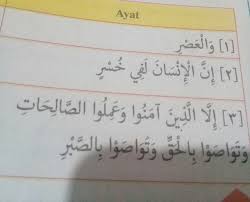 Ayat
[١] وَالْعَصْرِ
[٢] إِنَّ الْإِنْسَانَ لَفِي خُسْرٍ
[٣] إِلَّا الَّذِينَ آمَنُوا وَعَمِلُوا الصَّالِحَاتِ
وَتَوَاصَوْا بِالْحَقِّ وَتَوَاصَوْا بِالصَّبْرِ